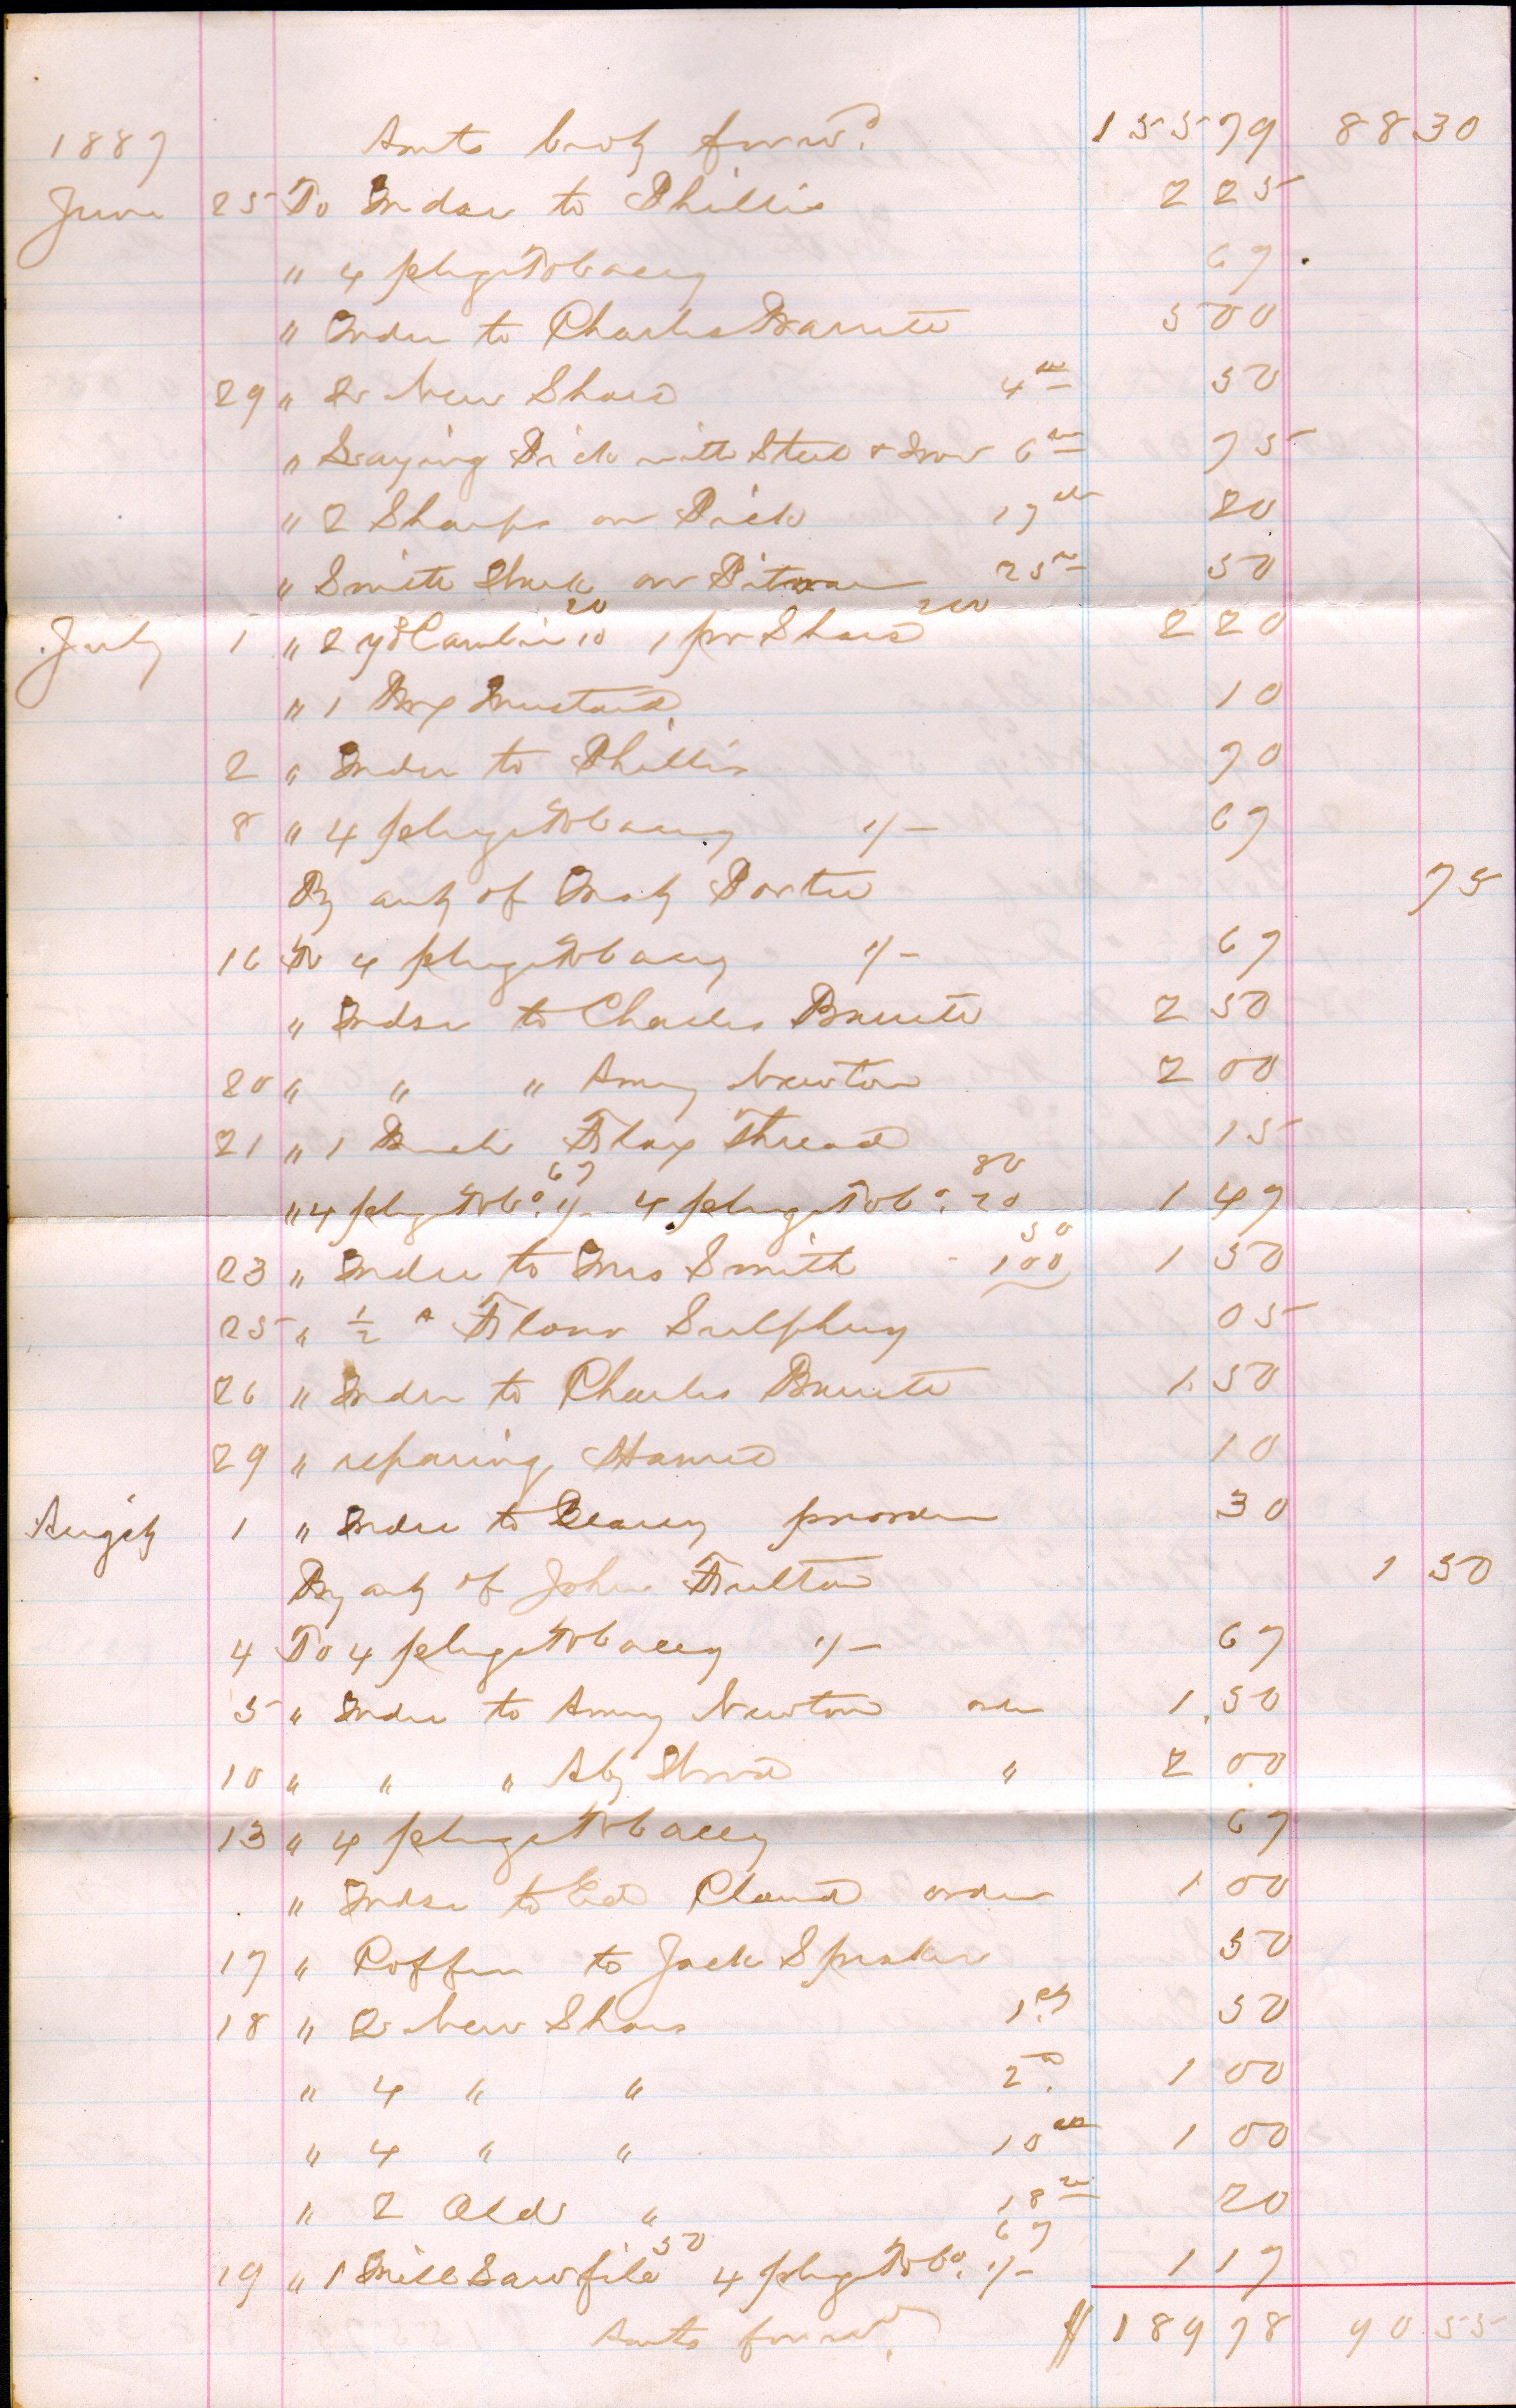 1887 Amts brot forwd. 155 79 88 30
June 25 To Mdse to Phillis 2 25
" 4 plugs Tobaccy 67
" Mdse to Charles Barrette 5 00
29 " 2 New Shoes 4th 50
" Laying Pick with Steel & Iron 6th 75
" 2 Sharps on Pick 17th 20
" Smith Work on Pitman 25th 50
20 200
July 1 " 2 yds Cambric 10 1 pr Shoes 2 20
" 1 Box Mustard 10
2 " Mdse to Phillis 70
8 " 4 plugs Tobaccy 1/- 67
By acct of Porter 75
16 To 4 plugs Tobaccy 1/- 67
" Mdse to Charles Barrette 2 50
20 " " " Amy Newton 2 00
21 " 1 Flax Thread 15
67 80
" 4 plugs Tobo. 1/- 4 plugs Tobo. 20 1 47
50
23 " Mdse to Mrs Smith 100 1 50
25 " 1/2 " Flour Sulphur 05
26 " Mdse to Charles Barrette 1.50
29 " reparing Hames 10
August 1 " Mdse to pr order 30
By acct of John Fulton 1 50
4 To 4 plugs Tobaccy 1/- 67
5 " Mdse to Amy Newton order 1.50
10 " " " " 2 00
13 " 4 plugs Tobaccy 67
" Mdse to Ed Cloud order 1 00
17 " Coffin to Jack Spraker 50
18 " 2 New Shoes 1st. 50
" 4 " " 2d. 1 00
" 4 " " 10th 1 00
" 2 Old " 18th 20
50 67
19 " 1 Mill Saw file 4 plugs Tobo. 1/- 1 17
Amts forwd. $ 189 78 90.55